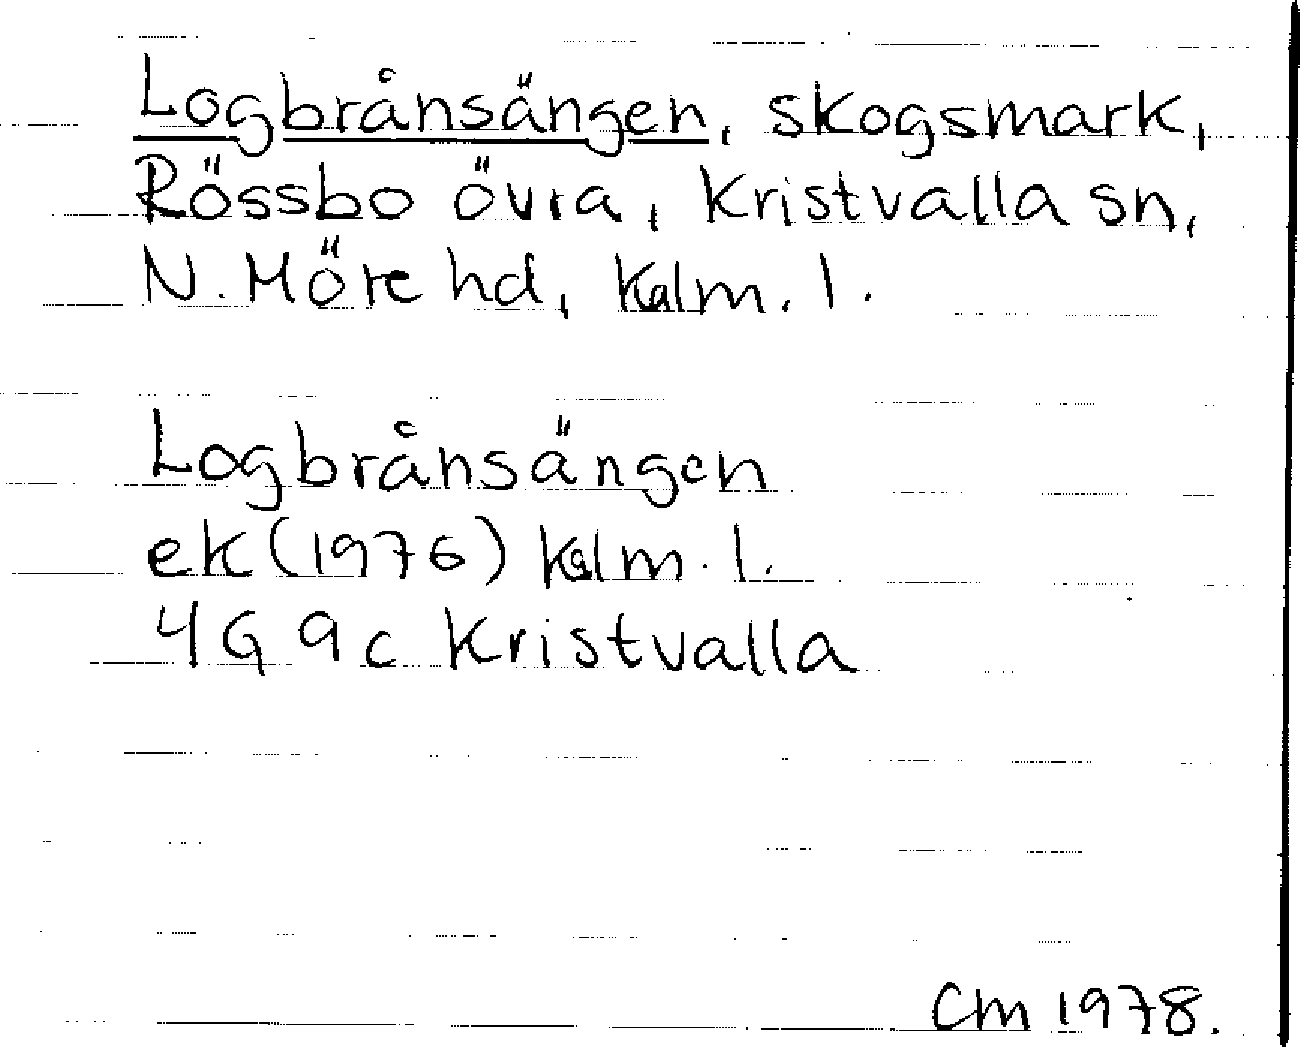 Logbrånsängen, skogsmark,
Rössbo övra, Kristvalla sn,
N. Möre hd, Kalm. l.
Logbrånsängen
ek (1976) Kalm. l.
4G 9c Kristvalla
CM 1978.